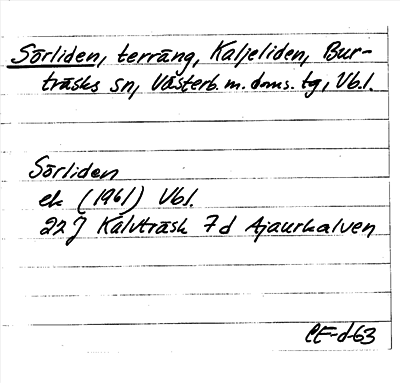 Sörliden, terräng, Kaljeliden, Bur-
träsks sn, Västerb. m. doms. tg, Vb.l.
Sörliden
ek (1961) Vbl.
22 J Kalvträsk 7d Ajaurkalven
CE-d-63